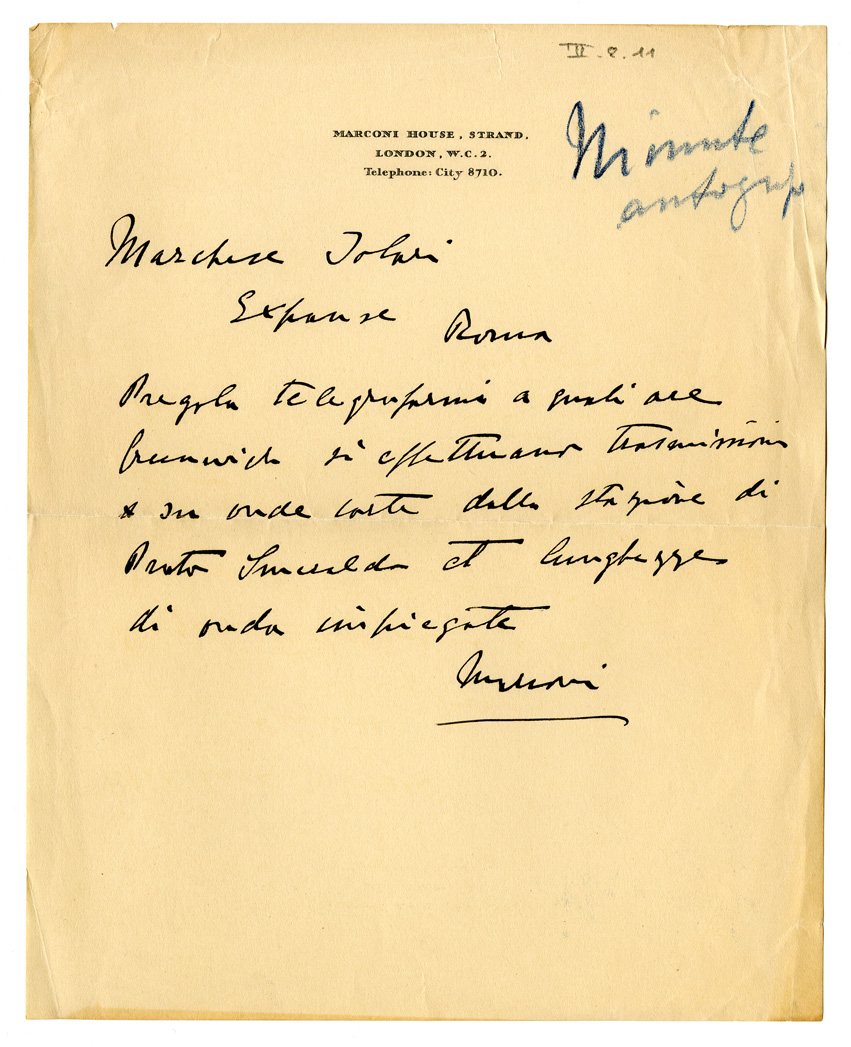 III. 2. 11
MARCONI HOUSE, STRAND,
LONDON, W.C.2.
Telephone: City 8710.
Minute
autografe
Marchese Solari
Expanse Roma
Pregola telegrafarmi a quali ore
Greenwich si effettuano trasmissioni
su onde corte dalla stazione di
Prato Smeraldo et lunghezze
di onda impiegate
Marconi